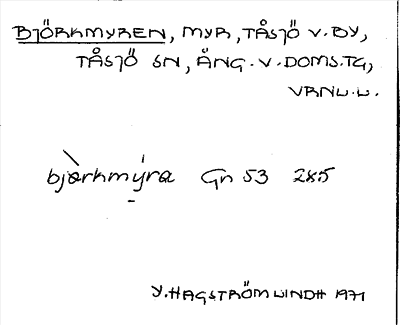 BJÖRKMYREN, MYR, TÅSJÖ V. BY,
TÅSJÖ SN, ÅNG. V. DOMS.TG,
VRNL.L.
bjàrkmýra Gn 53 285
Y. HAGSTRÖM LINDH 1971